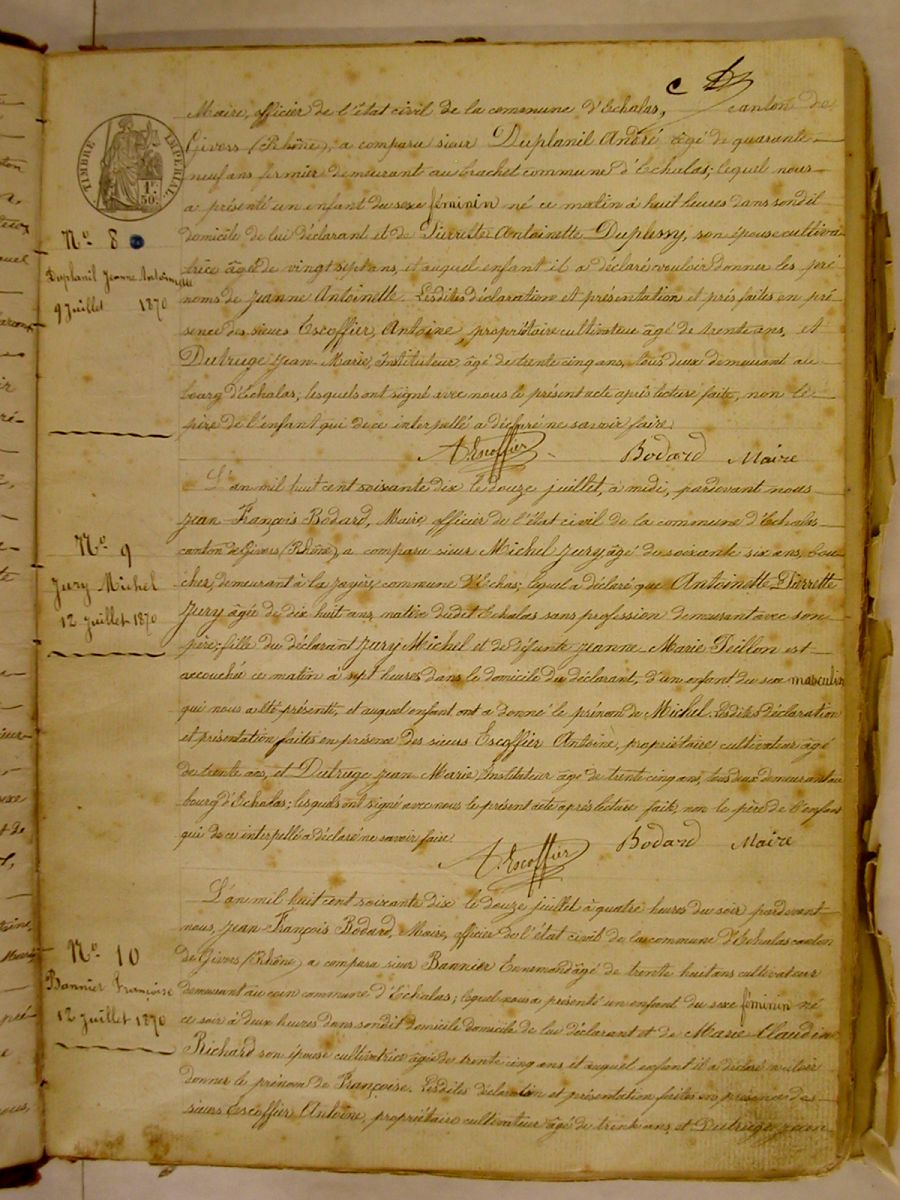 Maire, officier de l'état civil de la commune d'Echalas, canton de
Givors (Rhône), a comparu sieur Duplanil André âgé de quarante
neuf ans fermier demeurant au brachet commune d'Echalas; lequel nous
a présenté un enfant du sexe féminin né ce matin à huit heures dans son dit
domicile de lui déclarant et de Pierrette Antoinette Duplessy, son épouse cultiva
trice âgée de vingt sept ans, et auquel enfant il a déclaré vouloir donner les pré
noms de Jeanne Antoinette. Lesdites déclaration et présentation et prés faites en pré
sence des sieurs Escoffier, Antoine, propriétaire cultivateur âgé de trente ans, et
Dutruge Jean-Marie, Instituteur âgé de trente cinq ans, tous deux demeurant au
bourg d'Echalas; lesquels ont signé avec nous le présent acte après lecture faite, non le
père de l'enfant qui de ce interpellé a déclaré ne savoir faire.
A. Escoffier Bodard Maire
TIMBRE IMPÉRIAL
1F 50c
No. 8
Duplanil Jeanne Antoinette
9 Juillet 1870
L'an mil huit cent soixante dix le douze juillet, à midi, pardevant nous
Jean-François Bodard, Maire officier de l'état civil de la commune d'Echalas
canton de Givors (Rhône), a comparu sieur Michel Jury âgé de soixante six ans, bou
cher, demeurant à la commune d'Echas; lequel a déclaré que Antoinette Pierrette
Jury âgée de dix huit ans, native dudit Echalas sans profession demeurant avec son
père; fille du déclarant Jury Michel et de défunte Jeanne Marie Peillon est
accouché ce matin à sept heures dans le domicile du déclarant, d'un enfant du sexe masculin
qui nous a été présenté, et auquel enfant ont a donné le prénom de Michel. Lesdites déclaration
et présentation faites en présence des sieurs Escoffier Antoine, propriétaire cultivateur âgé
de trente ans, et Dutruge Jean-Marie, Instituteur âgé de trente cinq ans, tous deux demeurant au
bourg d'Echalas; lesquels ont signé avec nous le présent acte après lecture faite, non le père de l'enfant
qui de ce interpellé a déclaré ne savoir faire.
A. Escoffier Bodard Maire
No. 9
Jury Michel
12 Juillet 1870
L'an mil huit cent soixante dix le douze juillet à quatre heures du soir pardevant
nous, Jean-François Bodard, Maire, officier de l'état civil de la commune d'Echalas canton
de Givors (Rhône) a comparu sieur Bannier Ennemond âgé de trente huit ans cultivateur
demeurant au coin commune d'Echalas; lequel nous a présenté un enfant du sexe féminin né
ce soir à deux heures dans sondit domicile domicile de lui déclarant et de Marie Claudine
Richard son épouse cultivatrice âgée de trente cinq ans et auquel enfant il a déclaré vouloir
donner le prénom de Françoise. Lesdites déclaration et présentation faites en présence des
sieurs Escoffier Antoine, propriétaire cultivateur âgé de trente ans, et Dutruge, Jean
No. 10
Bannier Françoise
12 Juillet 1870